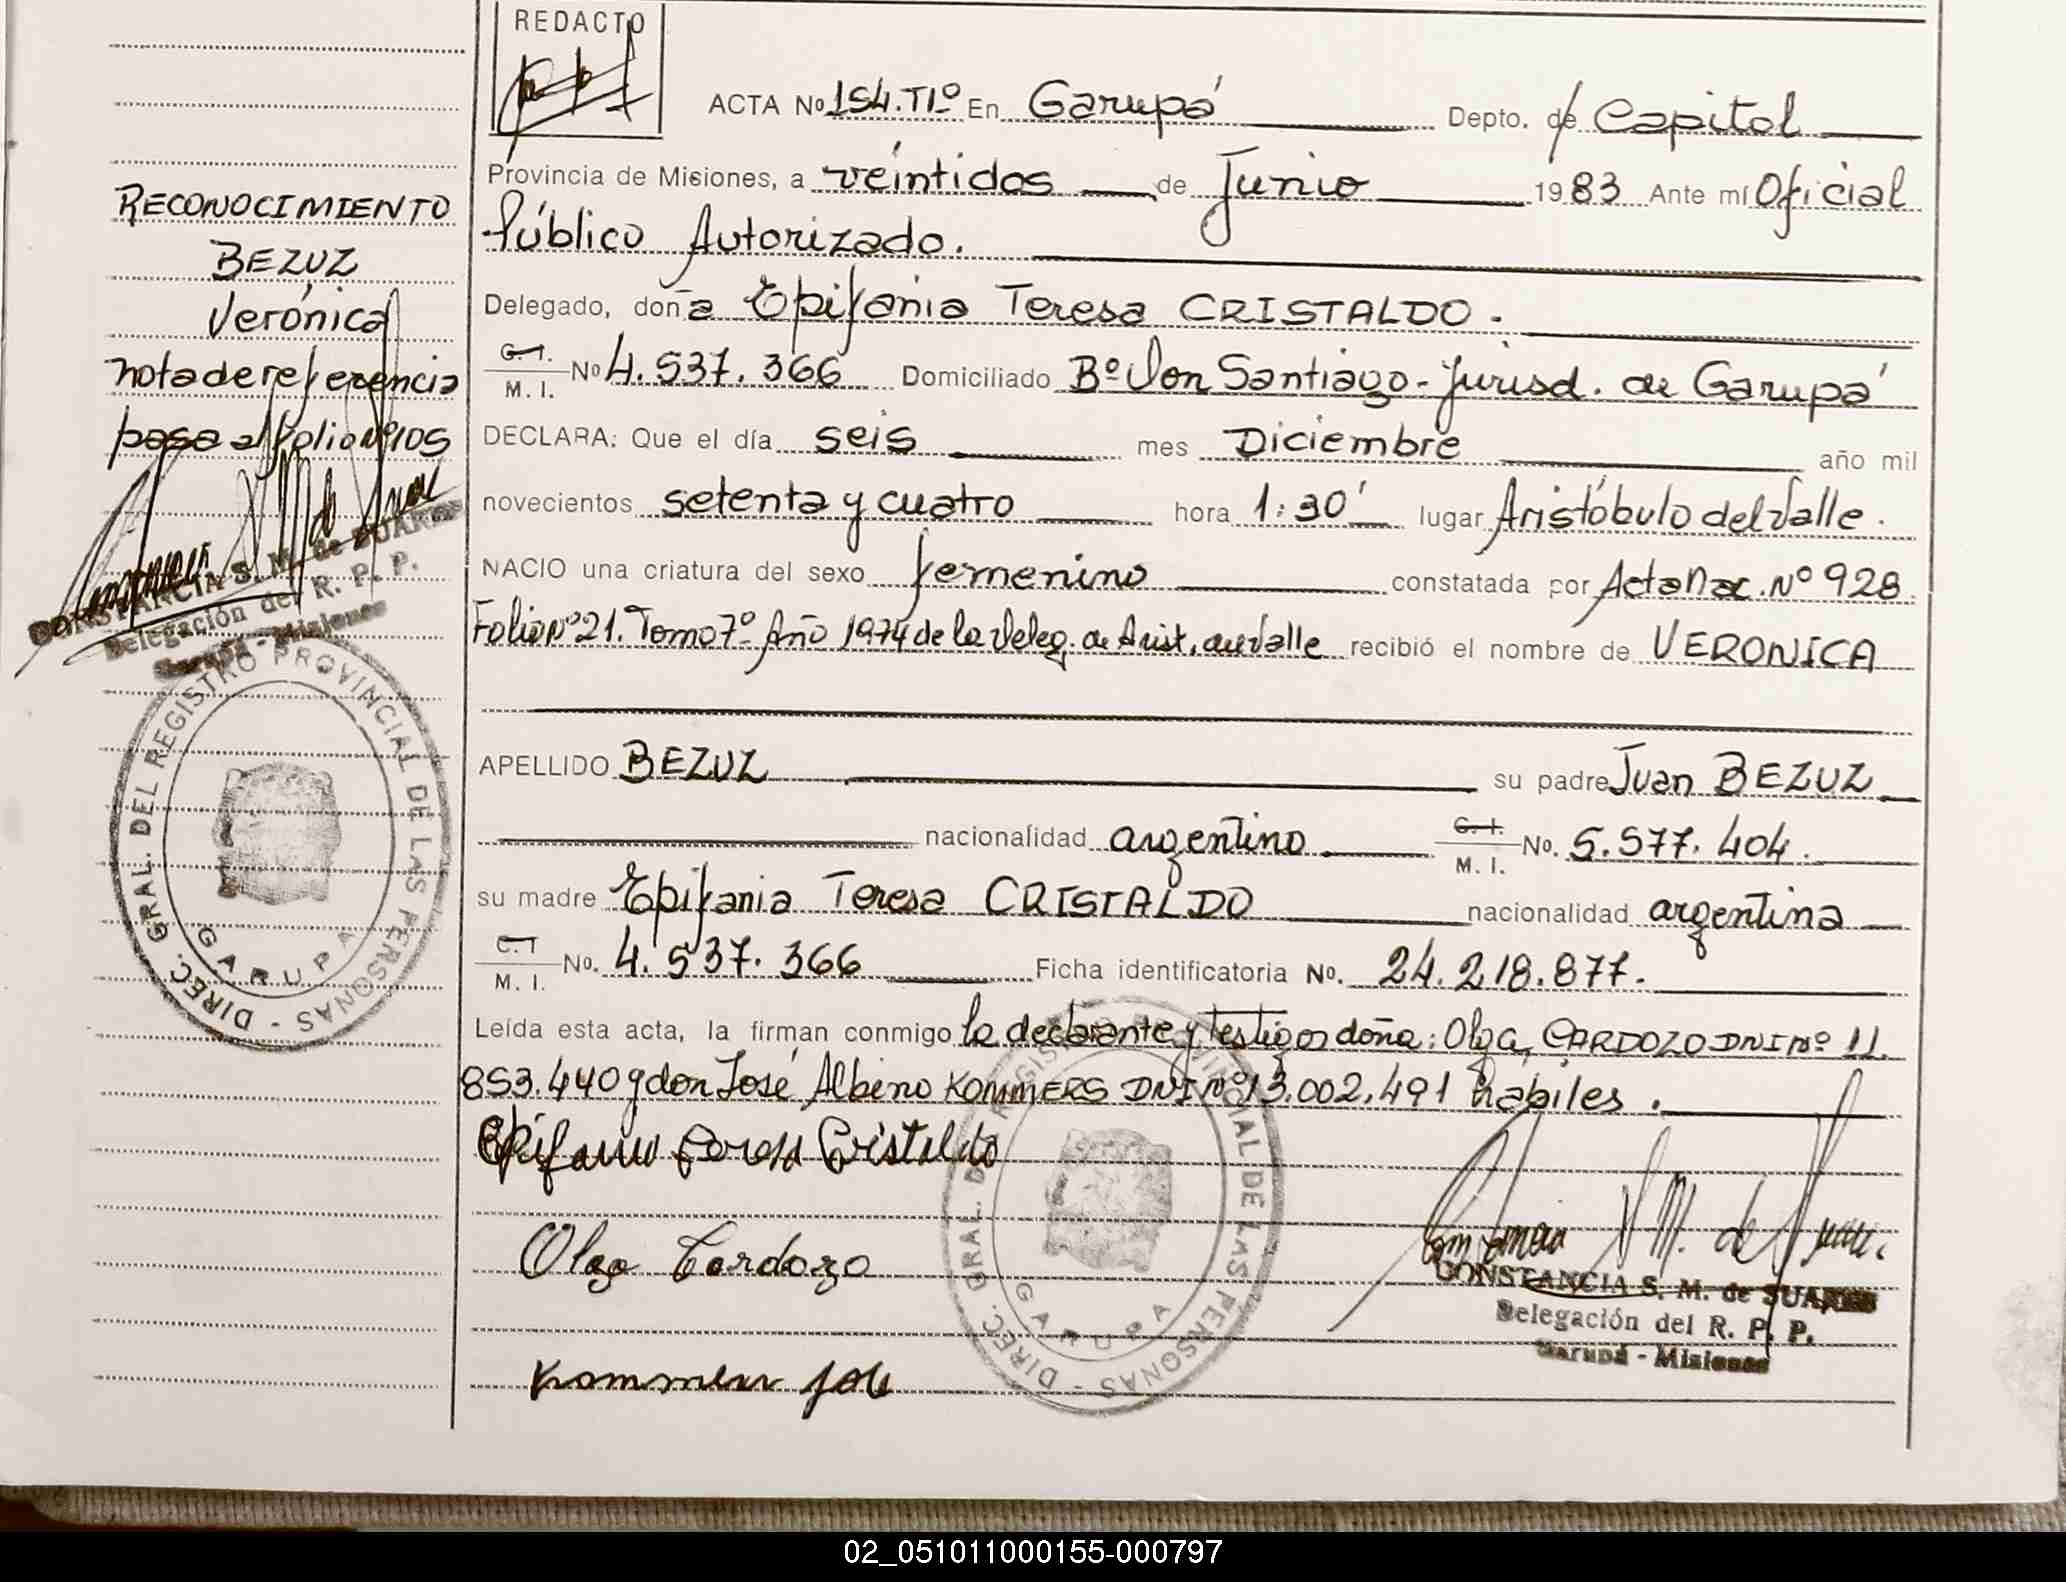 REDACTO
ACTA No 154.TIº En Garupá Depto. de Capital
Provincia de Misiones, a veintidos de Junio 1983 Ante mí Oficial
Público Autorizado.
Delegado, doña Epifania Teresa CRISTALDO.
C. I. M. I. No 4.537.366 Domiciliado Bº Don Santiago - Jurisd. de Garupá
DECLARA: Que el día seis mes Diciembre año mil
novecientos setenta y cuatro hora 1:30' lugar Aristóbulo del Valle.
NACIO una criatura del sexo femenino constatada por Acta Nac. Nº 928
Folio Nº 21. Tomo 7º Año 1974 de la Deleg. de Arist. del Valle recibió el nombre de VERONICA
APELLIDO BEZUZ su padre Juan BEZUZ
nacionalidad argentino C. I. M. I. No. 5.577.404.
su madre Epifania Teresa CRISTALDO nacionalidad argentina
C. I M. I. No. 4.537.366 Ficha identificatoria No. 24.218.877.
Leída esta acta, la firman conmigo la declarante y testigos doña: Olga CARDOZO DNI Nº 11.
853.440 y don José Albino KOMMERS DNI Nº 13.002.491 hábiles.
Epifania Teresa Cristaldo
Olga Cardozo
Kommers José
CONSTANCIA S. M. de SUARES
Delegación del R. P. P.
Garupá - Misiones
DIREC. GRAL. DEL REGISTRO PROVINCIAL DE LAS PERSONAS -
GARUPA
RECONOCIMIENTO
BEZUZ
Verónica
nota de referencia
pasa al folio Nº 105
CONSTANCIA S. M. de SUARES
Delegación del R. P. P.
Garupá - Misiones
DIREC. GRAL. DEL REGISTRO PROVINCIAL DE LAS PERSONAS -
GARUPA
02_051011000155-000797